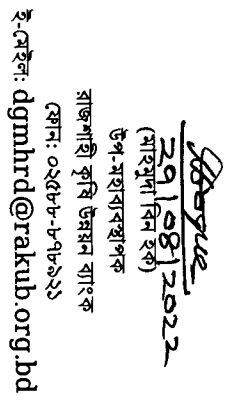 29/08/2022
(মাহমুদা বিন হক)
উপ-মহাব্যবস্থাপক
রাজশাহী কৃষি উন্নয়ন ব্যাংক
ফোন: ০২৫৮৮-৮৭৮৯২১
ই-মেইল: dgmhrd@rakub.org.bd